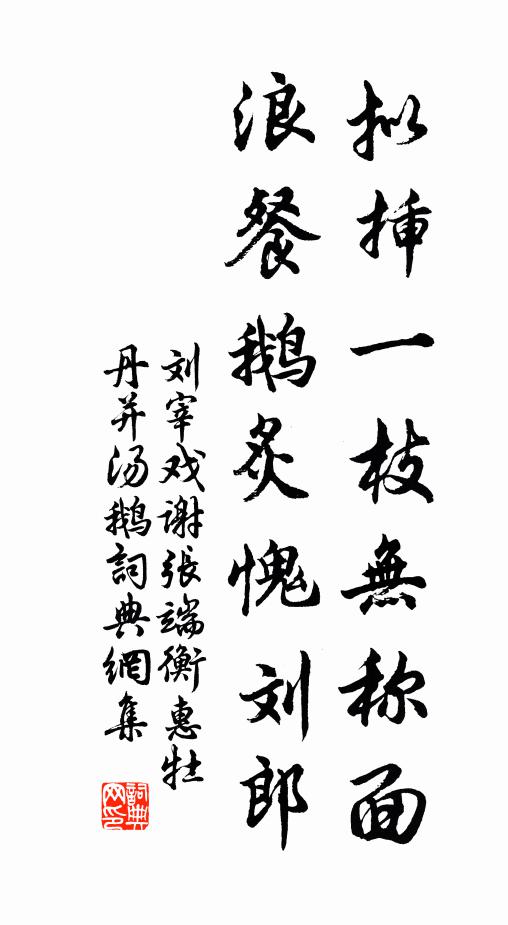 拟挿一枝無称面
浪餐鹅炙愧刘郎
刘宰戏谢張端衡惠牡
丹并汤鹅詞典網集
詞典
网印